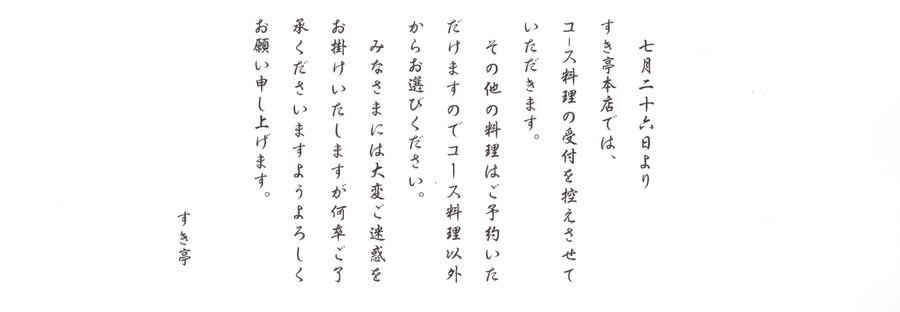 七月二十六日より
すき亭本店では、
コース料理の受付を控えさせて
いただきます。
その他の料理はご予約いた
だけますのでコース料理以外
からお選びください。
みなさまには大変ご迷惑を
お掛けいたしますが何卒ご了
承くださいますようよろしく
お願い申し上げます。
すき亭